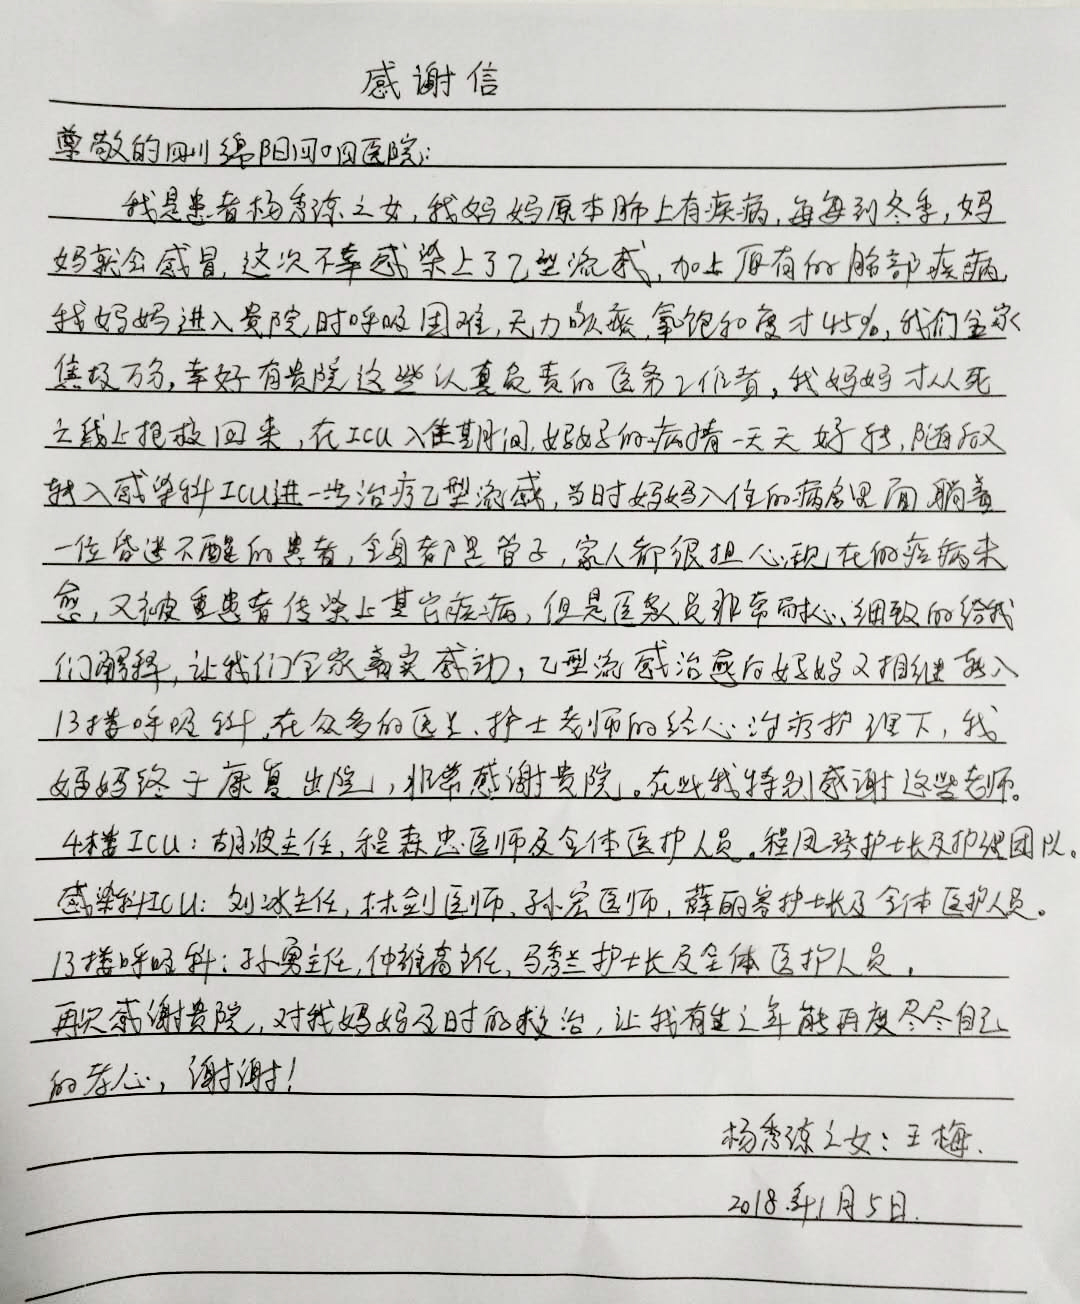 感谢信
尊敬的四川绵阳四0四医院:
我是患者杨秀琼之女,我妈妈原本肺上有疾病,每每到冬季,妈
妈就会感冒,这次不幸感染上了乙型流感,加上原有的肺部疾病,
我妈妈进入贵院时呼吸困难,无力咳痰,氧饱和度才45%,我们全家
焦极万分,幸好有贵院这些认真负责的医务工作者,我妈妈才从死
亡线上抢救回来,在ICU入住期间,妈妈的病情一天天好转,随后又
转入感染科ICU进一步治疗乙型流感,当时妈妈入住的病房里面躺着
一位昏迷不醒的患者,全身都是管子,家人都很担心现在的疾病未
愈,又被重患者传染上其它疾病,但是医务员非常耐心、细致的给我
们解释,让我们全家着实感动,乙型流感治愈后妈妈又相继转入
13楼呼吸科,在众多的医生、护士老师的经心治疗护理下,我
妈妈终于康复出院,非常感谢贵院。在此我特别感谢这些老师。
4楼ICU:胡波主任,程森忠医师及全体医护人员。程凤琴护士长及护理团队。
感染科ICU:刘冰主任,林剑医师、孙宏医师,薛丽容护士长及全体医护人员。
13楼呼吸科:孙勇主任,仲维高主任,马秀兰护士长及全体医护人员,
再次感谢贵院,对我妈妈及时的救治,让我有生之年能再度尽尽自己
的孝心,谢谢!
杨秀琼之女:王梅.
2018年1月5日.